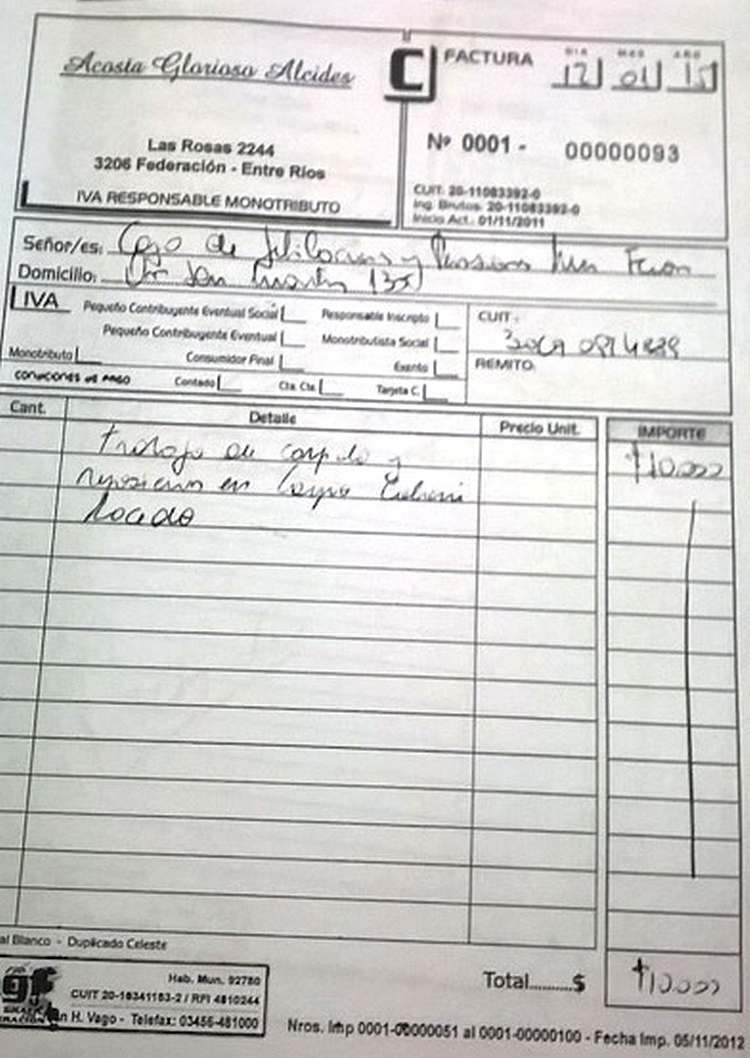 Acosta Glorioso Alcides
Las Rosas 2244
3206 Federación - Entre Ríos
IVA RESPONSABLE MONOTRIBUTO
C
FACTURA
DIA MES AÑO
12 01 15
Nº 0001 - 00000093
CUIT: 20-11083392-0
Ing. Brutos: 20-11083392-0
Inicio Act.: 01/11/2011
Señor/es: Caja de Jubilaciones y Pensiones
Domicilio: San Martín
IVA
Pequeño Contribuyente Eventual Social
Responsable Inscripto
Pequeño Contribuyente Eventual
Monotributista Social
Monotributo
Consumidor Final
Exento
CONDICIONES DE PAGO
Contado
Cta. Cte.
Tarjeta C.
CUIT:
REMITO:
Cant. Detalle Precio Unit. IMPORTE
trabajo de y $10.000
en
al Blanco - Duplicado Celeste
Total.........$ $10.000
gf
Hab. Mun. 92780
CUIT 20-16341183-2 / RPI 4810244
n H. Vago - Telefax: 03456-481000
Nros. Imp 0001-00000051 al 0001-00000100 - Fecha Imp. 05/11/2012